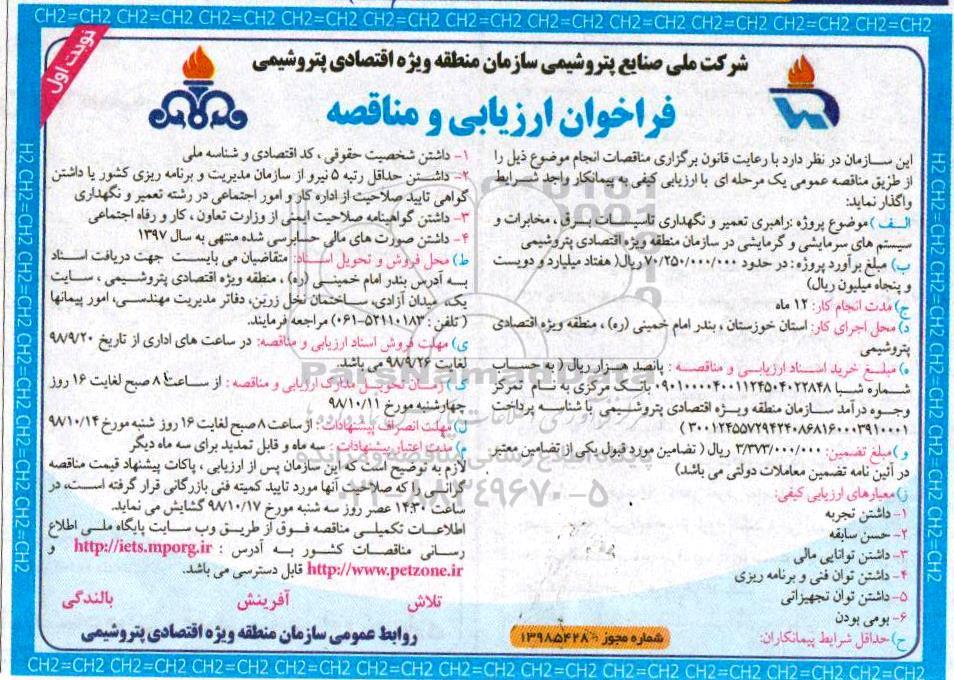 CH2=CH2 CH2=CH2 CH2=CH2 CH2=CH2 CH2=CH2 CH2=CH2 CH2=CH2 CH2=CH2 CH2=CH2 CH2=CH2
نوبت اول
شرکت ملی صنایع پتروشیمی سازمان منطقه ویژه اقتصادی پتروشیمی
فراخوان ارزیابی و مناقصه
این سازمان در نظر دارد با رعایت قانون برگزاری مناقصات انجام موضوع ذیل را
از طریق مناقصه عمومی یک مرحله ای با ارزیابی کیفی به پیمانکار واجد شرایط
واگذار نماید:
الف) موضوع پروژه :راهبری تعمیر و نگهداری تاسیسات برق ، مخابرات و
سیستم های سرمایشی و گرمایشی در سازمان منطقه ویژه اقتصادی پتروشیمی
ب) مبلغ برآورد پروژه: در حدود ۷۰/۲۵۰/۰۰۰/۰۰۰ ریال( هفتاد میلیارد و دویست
و پنجاه میلیون ریال)
ج) مدت انجام کار: ۱۲ ماه
د) محل اجرای کار: استان خوزستان ، بندر امام خمینی (ره) ، منطقه ویژه اقتصادی
پتروشیمی
ه) مبلغ خرید اسناد ارزیابی و مناقصه : پانصد هزار ریال ( به حساب
شماره شبا ۰۹۰۱۰۰۰۰۴۰۰۱۱۲۴۵۰۴۰۲۲۸۴۸ بانک مرکزی با نام تمرکز
وجوه درآمد سازمان منطقه ویژه اقتصادی پتروشیمی با شناسه پرداخت
۳۰۰۱۲۴۵۵۷۲۹۴۲۴۰۸۶۸۱۶۰۰۰۳۹۱۰۰۰۱ )
و) مبلغ تضمین: ۳/۳۷۳/۰۰۰/۰۰۰ ریال ( تضامین مورد قبول یکی از تضامین معتبر
در آئین نامه تضمین معاملات دولتی می باشد)
ز) معیارهای ارزیابی کیفی:
۱- داشتن تجربه
۲- حسن سابقه
۳- داشتن توانایی مالی
۴- داشتن توان فنی و برنامه ریزی
۵- داشتن توان تجهیزاتی
۶- بومی بودن
ح) حداقل شرایط پیمانکاران:
۱- داشتن شخصیت حقوقی ، کد اقتصادی و شناسه ملی
۲- داشتن حداقل رتبه ۵ نیرو از سازمان مدیریت و برنامه ریزی کشور یا داشتن
گواهی تایید صلاحیت از اداره کار و امور اجتماعی در رشته تعمیر و نگهداری
۳- داشتن گواهینامه صلاحیت ایمنی از وزارت تعاون ، کار و رفاه اجتماعی
۴- داشتن صورت های مالی حسابرسی شده منتهی به سال ۱۳۹۷
ط) محل فروش و تحویل اسناد: متقاضیان می بایست جهت دریافت اسناد
به آدرس بندر امام خمینی (ره) ، منطقه ویژه اقتصادی پتروشیمی ، سایت
یک، میدان آزادی، ساختمان نخل زرین، دفاتر مدیریت مهندسی، امور پیمانها
( تلفن : ۵۲۱۱۰۱۸۳-۰۶۱) مراجعه فرمایند.
ی) مهلت فروش اسناد ارزیابی و مناقصه: در ساعت های اداری از تاریخ ۹۸/۹/۲۰
لغایت ۹۸/۹/۲۶ می باشد.
ک) زمان تحویل مدارک ارزیابی و مناقصه : از ساعت ۸ صبح لغایت ۱۶ روز
چهارشنبه مورخ ۹۸/۱۰/۱۱
ل) مهلت انصراف پیشنهادات : از ساعت ۸ صبح لغایت ۱۶ روز شنبه مورخ ۹۸/۱۰/۱۴
م) مدت اعتبار پیشنهادات : سه ماه و قابل تمدید برای سه ماه دیگر
لازم به توضیح است که این سازمان پس از ارزیابی ، پاکات پیشنهاد قیمت مناقصه
گرانی را که صلاحیت آنها مورد تایید کمیته فنی بازرگانی قرار گرفته است، در
ساعت ۱۴:۳۰ عصر روز سه شنبه مورخ ۹۸/۱۰/۱۷ گشایش می نماید.
اطلاعات تکمیلی مناقصه فوق از طریق وب سایت پایگاه ملی اطلاع
رسانی مناقصات کشور به آدرس : http://iets.mporg.ir و
http://www.petzone.ir قابل دسترسی می باشد.
تلاش آفرینش بالندگی
شماره مجوز : ۱۳۹۸۵۴۲۸
روابط عمومی سازمان منطقه ویژه اقتصادی پتروشیمی
۰۲۱-۸۸۳۴۹۶۷۰-۵
CH2=CH2 CH2=CH2 CH2=CH2 CH2=CH2 CH2=CH2 CH2=CH2 CH2=CH2 CH2=CH2 CH2=CH2 CH2=CH2